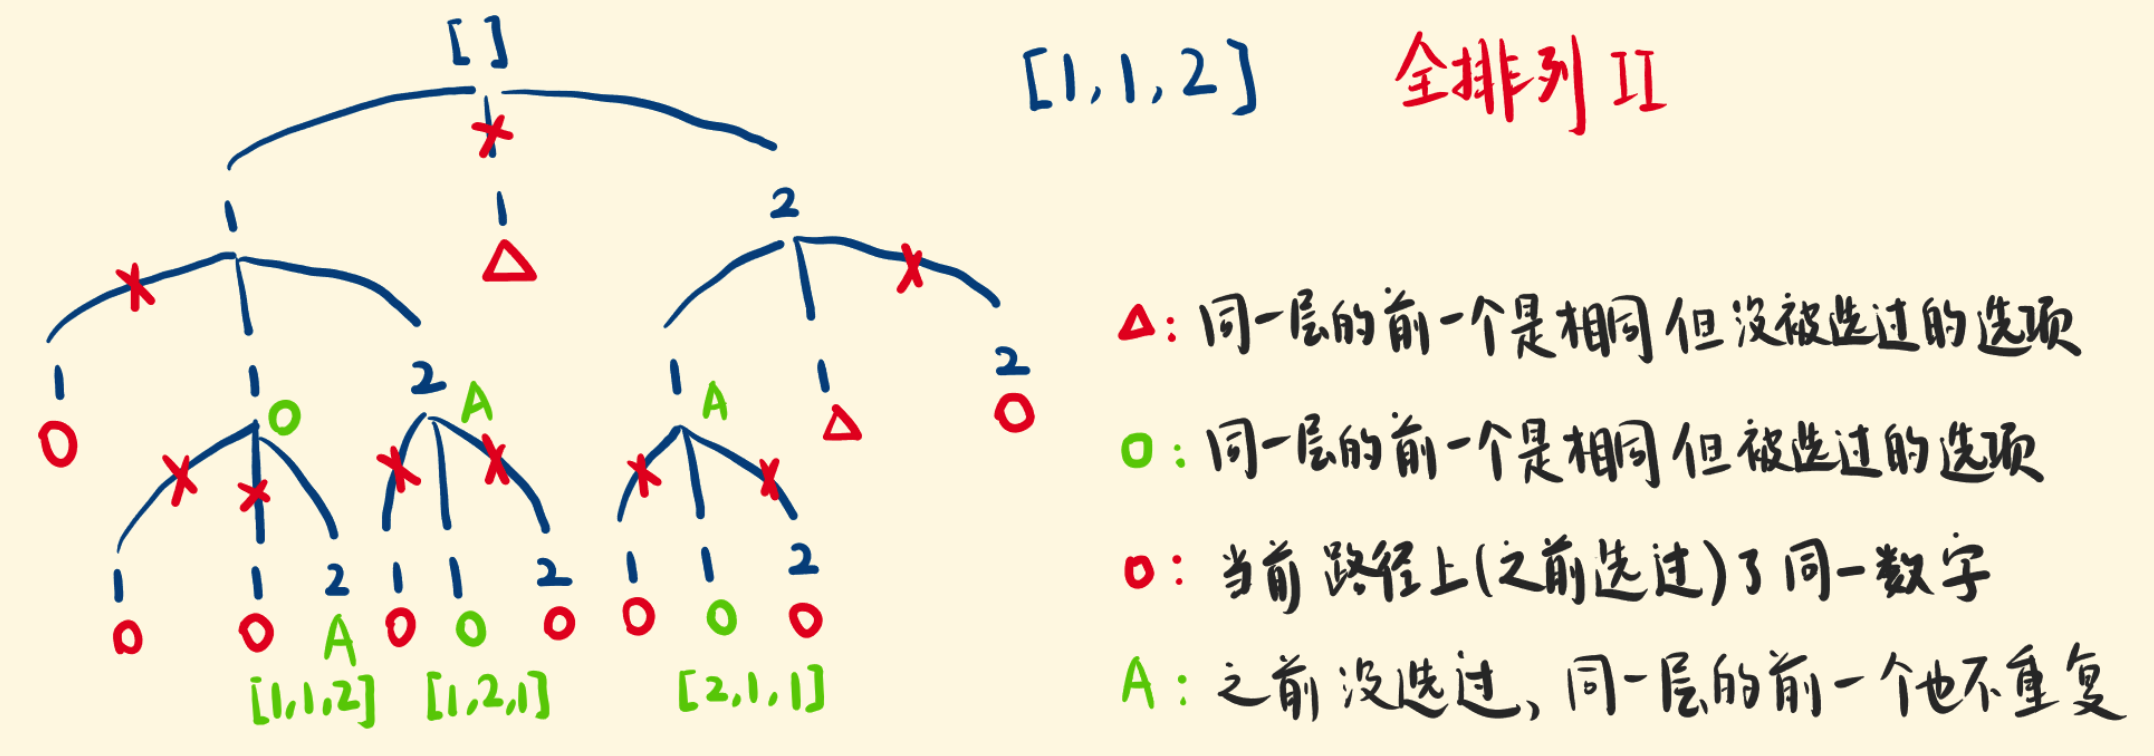 [ ]
[1,1,2] 全排列 II
1 1 2
△
1 1 2 1 1 2
O O A A △ O
1 1 2 1 1 2 1 1 2
O O A O O O O O O
[1,1,2] [1,2,1] [2,1,1]
△: 同一层的前一个是相同但没被选过的选项
O: 同一层的前一个是相同但被选过的选项
O: 当前路径上(之前选过)了同一数字
A: 之前没选过、同一层的前一个也不重复